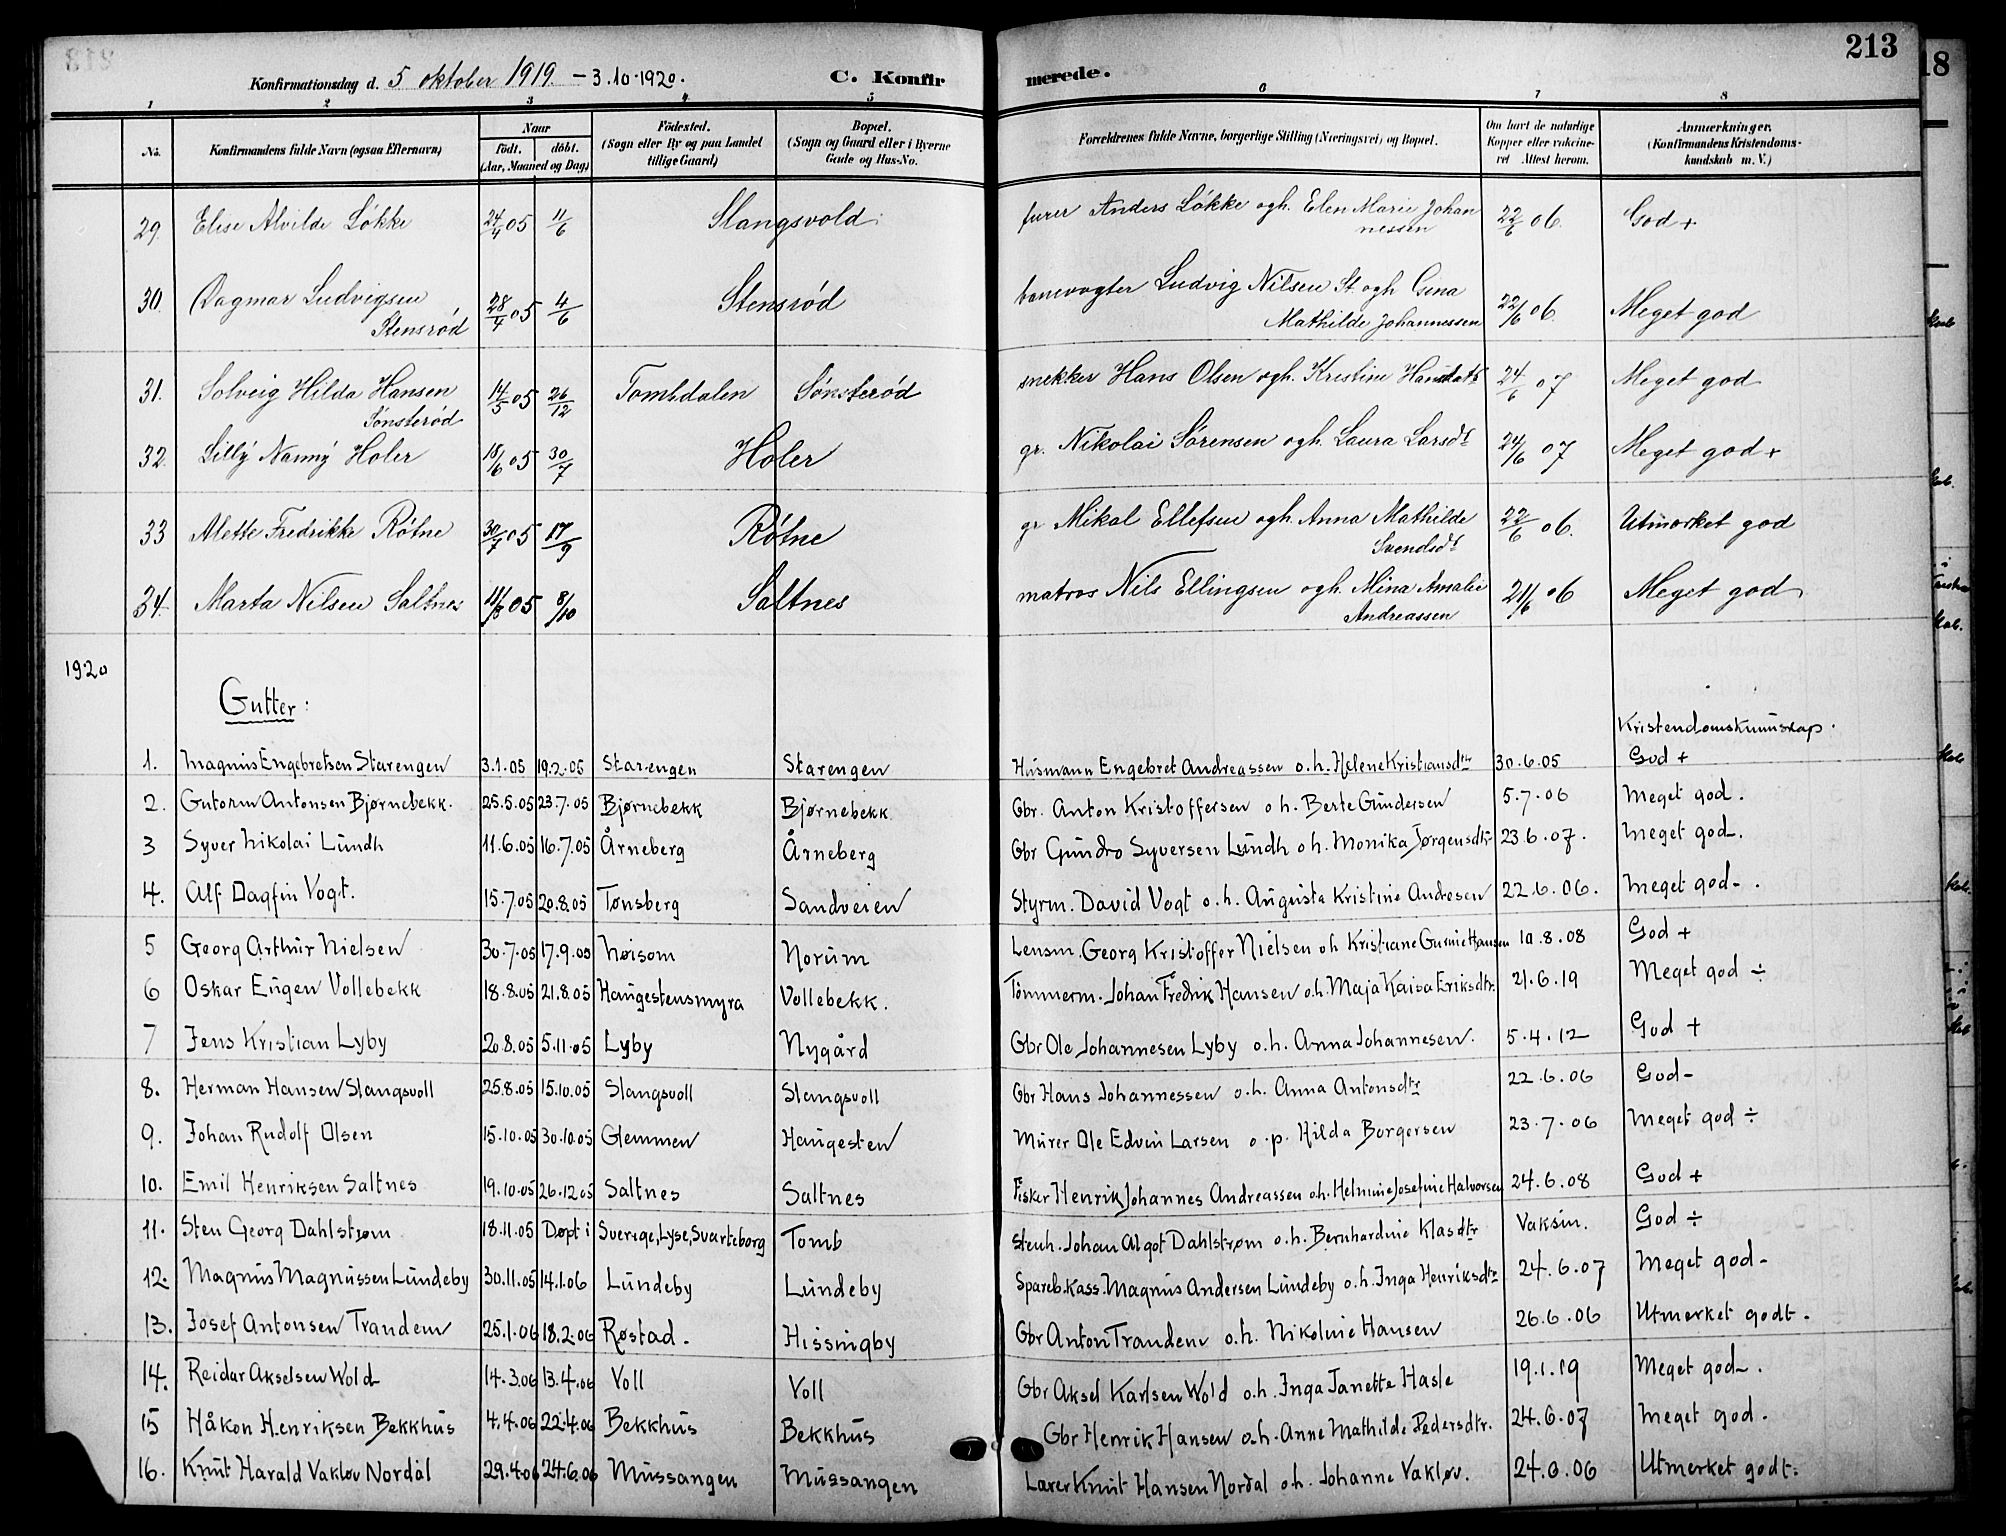 213
Konfirmationsdag d. 5 oktober 1919 - 3.10.1920. C. Konfirmerede.
1 2 3 4 5 6 7 8
No. Konfirmandens fulde Navn (ogsaa Efternavn) Naar født. døbt. (Aar, Maaned og Dag) Födested. (Sogn eller By og paa Landet tillige Gaard) Bopæl. (Sogn og Gaard eller i Byerne Gade og Hus-No. Forældrenes fulde Navne, borgerlige Stilling (Næringsvei) og Bopæl. Om havt de naturlige Kopper eller vakcineret Attest herom. Anmærkninger. (Konfirmandens Kristendomskundskab m. V.)
29. Elise Alvilde Løkke 24/4 05 11/6 Slangsvold furer Anders Løkke ogh. Elen Marie Johannessen 22/6 06. God +
30. Dagmar Ludvigsen Stensrød 28/4 05 4/6 Stensrød banevogter Ludvig Nilsen St. ogh Gina Mathilde Johannessen 22/6 06. Meget god
31. Solveig Hilda Hansen Sønsterød 14/5 05 26/12 Tombdalen Sønsterød snekker Hans Olsen ogh. Kristine 24/6 07 Meget god
32. Lilly Nanny Holer 18/6 05 30/7 Holer gr. Nikolai Sørensen ogh. Laura Larsdt 24/6 07 Meget god +
33 Alette Fredrikke Rötne 30/7 05 17/9 Rötne gr Mikal Ellefsen ogh. Anna Mathilde Svendsdt 22/6 06. Utmørket god
34. Marta Nilsen Saltnes 11/8 05 8/10 Saltnes matros Nils Ellingsen ogh. Mina Amalie Andreassen 21/6 06 Meget god
1920
Gutter:
Kristendomskunnskap.
1. Magnus Engebretsen Starengen 3.1.05 19.2.05 Starengen Starengen Husmann Engebret Andreassen o.h. Helene Kristiansdtr 30.6.05 God +
2. Gutorm Antonsen Bjørnebekk. 25.5.05 23.7.05 Bjørnebekk Bjørnebekk Gbr. Anton Kristoffersen o h. Berte Gundersen 5.7.06 Meget god.
3 Syver Nikolai Lundh 11.6.05 16.7.05 Årneberg Årneberg Gbr Gundro Syversen Lundh o h. Monika Jørgensdtr 23.6.07. Meget god.
4. Alf Dagfin Vogt. 15.7.05 20.8.05 Tønsberg Sandveien Styrm. David Vogt o.h. Augusta Kristine Andresen 22.6.06. Meget god - .
5 Georg Arthur Nielsen 30.7.05 17.9.05 Norum Lensm. Georg Kristoffer Nielsen oh Kristiane Gurine Hansen 10.8.08 God +
6 Oskar Eugen Vollebekk 18.8.05 21.8.05 Haugestensmyra Vollebekk. Tömmerm. Johan Fredrik Hansen o.h. Maja Kaisa Eriksdtr. 21.6.19 Meget god ÷
7 Jens Kristian Lyby 20.8.05 5.11.05 Lyby Nygård Gbr Ole Johannesen Lyby o.h. Anna Johannesen. 5.4.12 God +
8. Herman Hansen Slangsvoll 25.8.05 15.10.05 Slangsvoll Slangsvoll Gbr Hans Johannessen o.h. Anna Antonsdtr 22.6.06 God -
9. Johan Rudolf Olsen 15.10.05 30.10.05 Glemmen Haugesten Murer Ole Edvin Larsen o.p. Hilda Borgersen 23.7.06 Meget god ÷
10. Emil Henriksen Saltnes 19.10.05 26.12.05 Saltnes Saltnes Fisker Henrik Johannes Andreassen o.h. Helmine Josefine Halvorsen 24.6.08 God +
11. Sten Georg Dahlstrøm 18.11.05 Døpt i Sverige, Lyse, Svarteborg Tomb Stenh. Johan Algot Dahlstrøm o.h. Bernhardine Klasdtr Vaksin. God ÷
12. Magnus Magnussen Lundeby 30.11.05 14.1.06 Lundeby Lundeby Spareb.kass. Magnus Andersen Lundeby o.h. Inga Henriksdtr 24.6.07 Meget god -
13. Josef Antonsen Trandem 25.1.06 18.2.06 Røstad. Hissingby Gbr Anton Trandem o.h. Nikoline Hansen 26.6.06 Utmerket godt.
14. Reidar Akselsen Wold 14.3.06 13.4.06 Voll Voll Gbr Aksel Karlsen Wold o.h. Inga Janette Hasle 19.1.19 Meget god - .
15 Håkon Henriksen Bekkhus 4.4.06 22.4.06 Bekkhus Bekkhus Gbr Henrik Hansen o.h. Anne Mathilde Pedersdtr. 24.6.07 Meget god.
16. Knut Harald Vakløv Nordal 29.4.06 24.6.06 Mussangen Mussangen Lærer Knut Hansen Nordal o.h. Johanne Vakløv. 24.6.06 Utmerket godt.